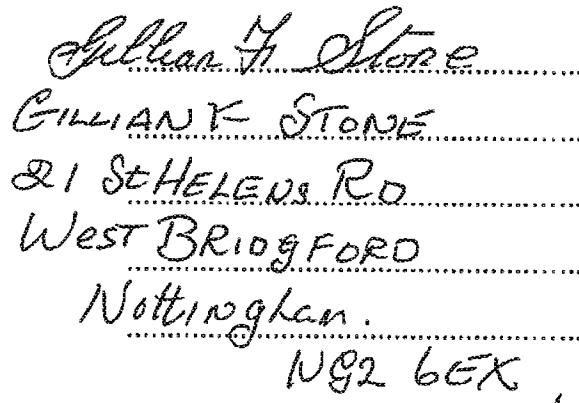 Gillian F Stone
GILLIAN F STONE
21 St HELENS RD
WEST BRIDGFORD
Nottingham.
NG2 6EX